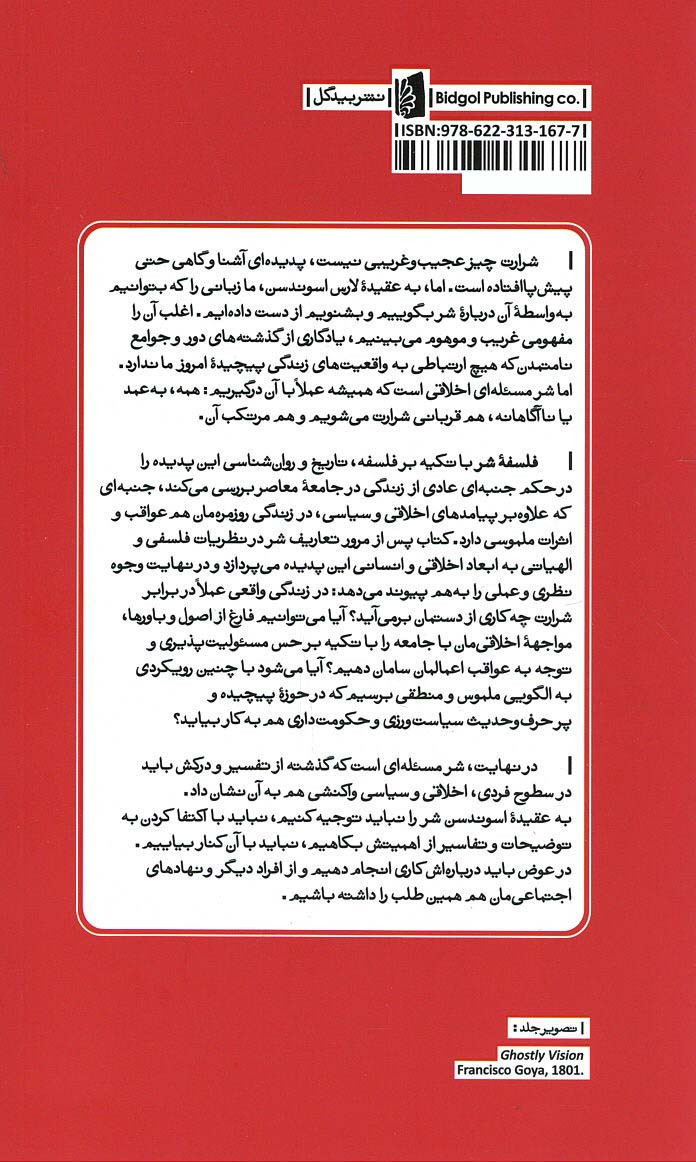 نشر بیدگل | Bidgol Publishing co.
ISBN:978-622-313-167-7
شرارت چیز عجیب‌وغریبی نیست، پدیده‌ای آشنا و گاهی حتی
پیش‌پاافتاده است. اما، به عقیدهٔ لارس اسوندسن، ما زبانی را که بتوانیم
به‌واسطهٔ آن دربارهٔ شر بگوییم و بشنویم از دست داده‌ایم. اغلب آن را
مفهومی غریب و موهوم می‌بینیم، یادگاری از گذشته‌های دور و جوامع
نامتمدن که هیچ ارتباطی به واقعیت‌های زندگی پیچیدهٔ امروز ما ندارد.
اما شر مسئله‌ای اخلاقی است که همیشه عملاً با آن درگیریم: همه، به‌عمد
یا ناآگاهانه، هم قربانی شرارت می‌شویم و هم مرتکب آن.
فلسفهٔ شر با تکیه بر فلسفه، تاریخ و روان‌شناسی این پدیده را
در حکم جنبه‌ای عادی از زندگی در جامعهٔ معاصر بررسی می‌کند، جنبه‌ای
که علاوه‌بر پیامدهای اخلاقی و سیاسی، در زندگی روزمره‌مان هم عواقب و
اثرات ملموسی دارد. کتاب پس از مرور تعاریف شر در نظریات فلسفی و
الهیاتی به ابعاد اخلاقی و انسانی این پدیده می‌پردازد و در نهایت وجوه
نظری و عملی را به‌هم پیوند می‌دهد: در زندگی واقعی عملاً در برابر
شرارت چه کاری از دستمان برمی‌آید؟ آیا می‌توانیم فارغ از اصول و باورها،
مواجههٔ اخلاقی‌مان با جامعه را با تکیه بر حس مسئولیت‌پذیری و
توجه به عواقب اعمالمان سامان دهیم؟ آیا می‌شود با چنین رویکردی
به الگویی ملموس و منطقی برسیم که در حوزهٔ پیچیده و
پر حرف‌وحدیث سیاست‌ورزی و حکومت‌داری هم به کار بیاید؟
در نهایت، شر مسئله‌ای است که گذشته از تفسیر و درکش باید
در سطوح فردی، اخلاقی و سیاسی واکنشی هم به آن نشان داد.
به عقیدهٔ اسوندسن شر را نباید توجیه کنیم، نباید با اکتفا کردن به
توضیحات و تفاسیر از اهمیتش بکاهیم، نباید با آن کنار بیاییم.
در عوض باید درباره‌اش کاری انجام دهیم و از افراد دیگر و نهادهای
اجتماعی‌مان هم همین طلب را داشته باشیم.
تصویر جلد:
Ghostly Vision
Francisco Goya, 1801.